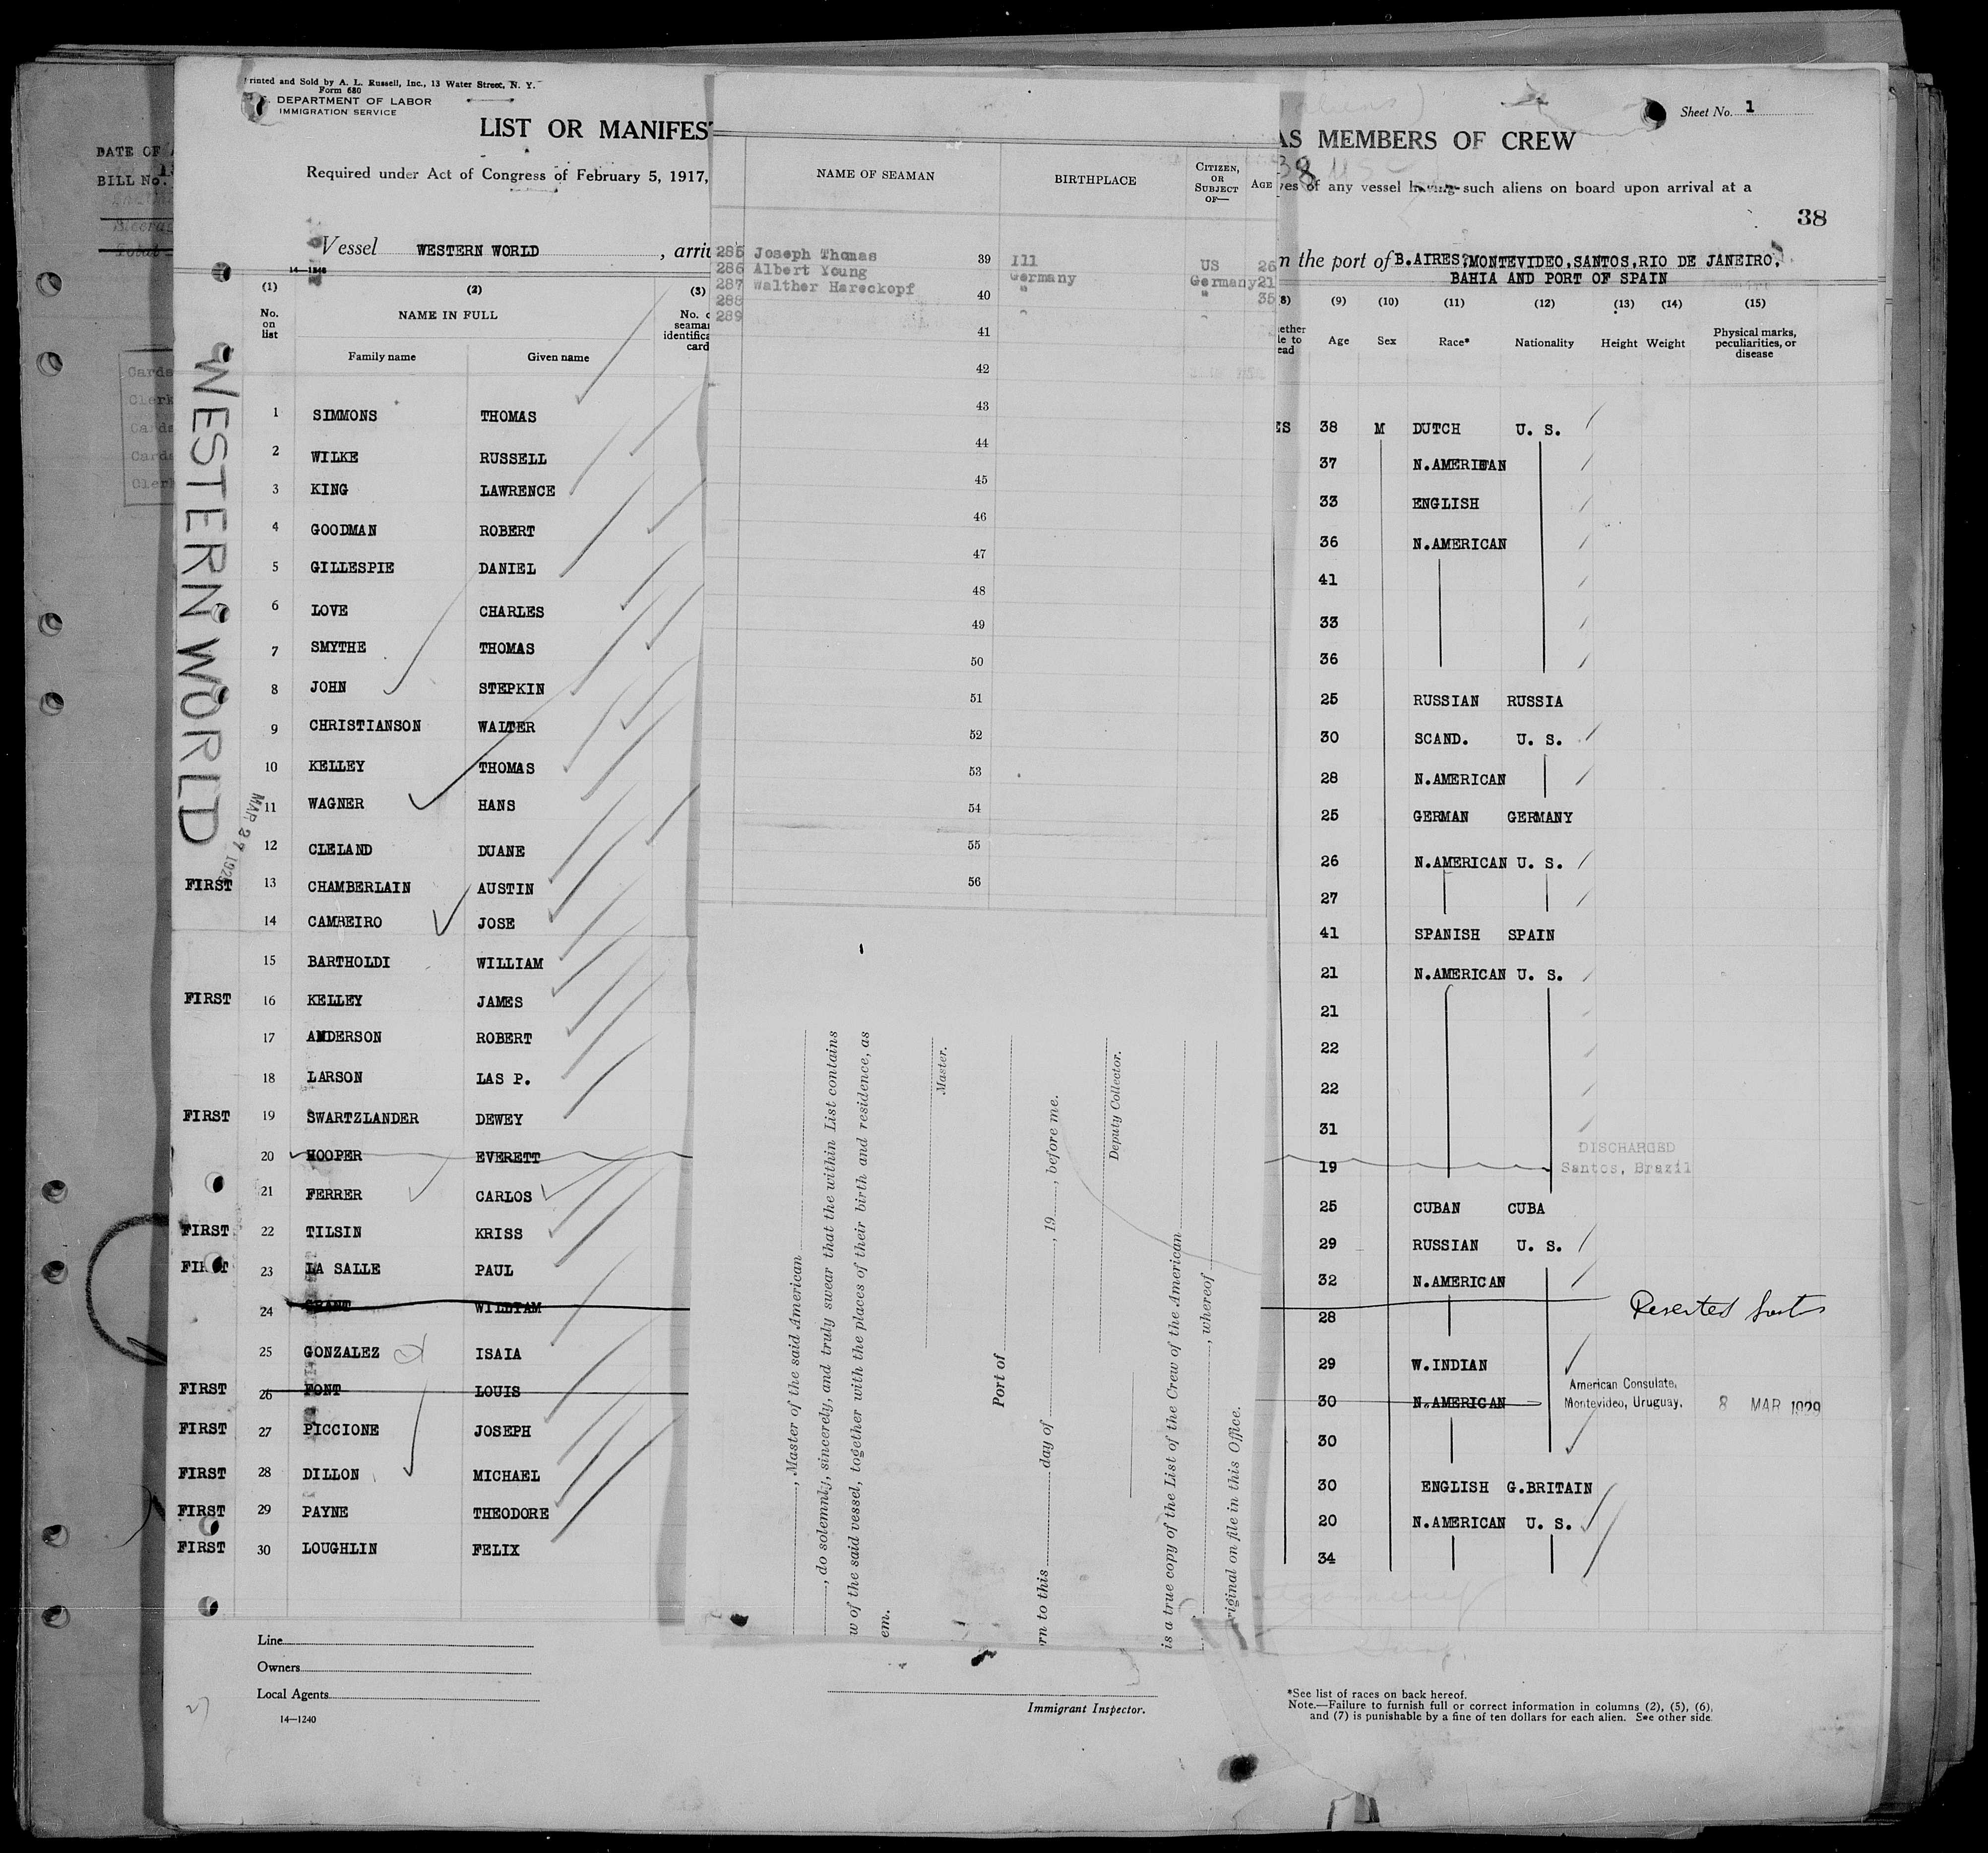 Printed and Sold by A. L. Russell, Inc., 13 Water Street, N. Y.
Form 680
DEPARTMENT OF LABOR
IMMIGRATION SERVICE
Sheet No. 1
LIST OR MANIFES
AS MEMBERS OF CREW
Required under Act of Congress of February 5, 1917,
of any vessel having such aliens on board upon arrival at a
38
38
Vessel WESTERN WORLD , arri
n the port of B.AIRES, MONTEVIDEO,SANTOS,RIO DE JANEIRO,
BAHIA AND PORT OF SPAIN
14-1240
DATE OF
BILL No.
Cards
Clerk
Cards
Cards
Clerk
WESTERN WORLD
MAR 27 192
(1) (2) (3)
No. on list
NAME IN FULL
Family name Given name
No. seaman identifica card
(8) (9) (10) (11) (12) (13) (14) (15)
Age Sex Race* Nationality Height Weight Physical marks, peculiarities, or disease
1 SIMMONS THOMAS 38 M DUTCH U. S.
2 WILKE RUSSELL 37 N.AMERICAN
3 KING LAWRENCE 33 ENGLISH
4 GOODMAN ROBERT 36 N.AMERICAN
5 GILLESPIE DANIEL 41
6 LOVE CHARLES 33
7 SMYTHE THOMAS 36
8 JOHN STEPKIN 25 RUSSIAN RUSSIA
9 CHRISTIANSON WALTER 30 SCAND. U. S.
10 KELLEY THOMAS 28 N.AMERICAN
11 WAGNER HANS 25 GERMAN GERMANY
12 CLELAND DUANE 26 N.AMERICAN U. S.
FIRST 13 CHAMBERLAIN AUSTIN 27
14 CAMBEIRO JOSE 41 SPANISH SPAIN
15 BARTHOLDI WILLIAM 21 N.AMERICAN U. S.
FIRST 16 KELLEY JAMES 21
17 ANDERSON ROBERT 22
18 LARSON LAS P. 22
FIRST 19 SWARTZLANDER DEWEY 31
20 HOOPER EVERETT 19 DISCHARGED Santos, Brazil
21 FERRER CARLOS 25 CUBAN CUBA
FIRST 22 TILSIN KRISS 29 RUSSIAN U. S.
FIRST 23 LA SALLE PAUL 32 N.AMERICAN
24 GRANT WILLIAM 28 Deserted
25 GONZALEZ ISAIA 29 W.INDIAN
FIRST 26 FONT LOUIS 30 N.AMERICAN American Consulate, Montevideo, Uruguay. 8 MAR 1929
FIRST 27 PICCIONE JOSEPH 30
FIRST 28 DILLON MICHAEL 30 ENGLISH G.BRITAIN
FIRST 29 PAYNE THEODORE 20 N.AMERICAN U. S.
FIRST 30 LOUGHLIN FELIX 34
NAME OF SEAMAN BIRTHPLACE CITIZEN, OR SUBJECT OF— AGE
285 Joseph Thomas 39 Ill US 26
286 Albert Young Germany Germany 21
287 Walther Hareckopf 40 " " 35
288
289
41
42
43
44
45
46
47
48
49
50
51
52
53
54
55
56
, Master of the said American
, do solemnly, sincerely, and truly swear that the within List contains
w of the said vessel, together with the places of their birth and residence, as
em.
Master.
Port of
rn to this day of , 19 , before me.
Deputy Collector.
is a true copy of the List of the Crew of the American
, whereof
riginal on file in this Office.
Line
Owners
Local Agents
14—1240
Immigrant Inspector.
*See list of races on back hereof.
Note.—Failure to furnish full or correct information in columns (2), (5), (6),
and (7) is punishable by a fine of ten dollars for each alien. See other side.